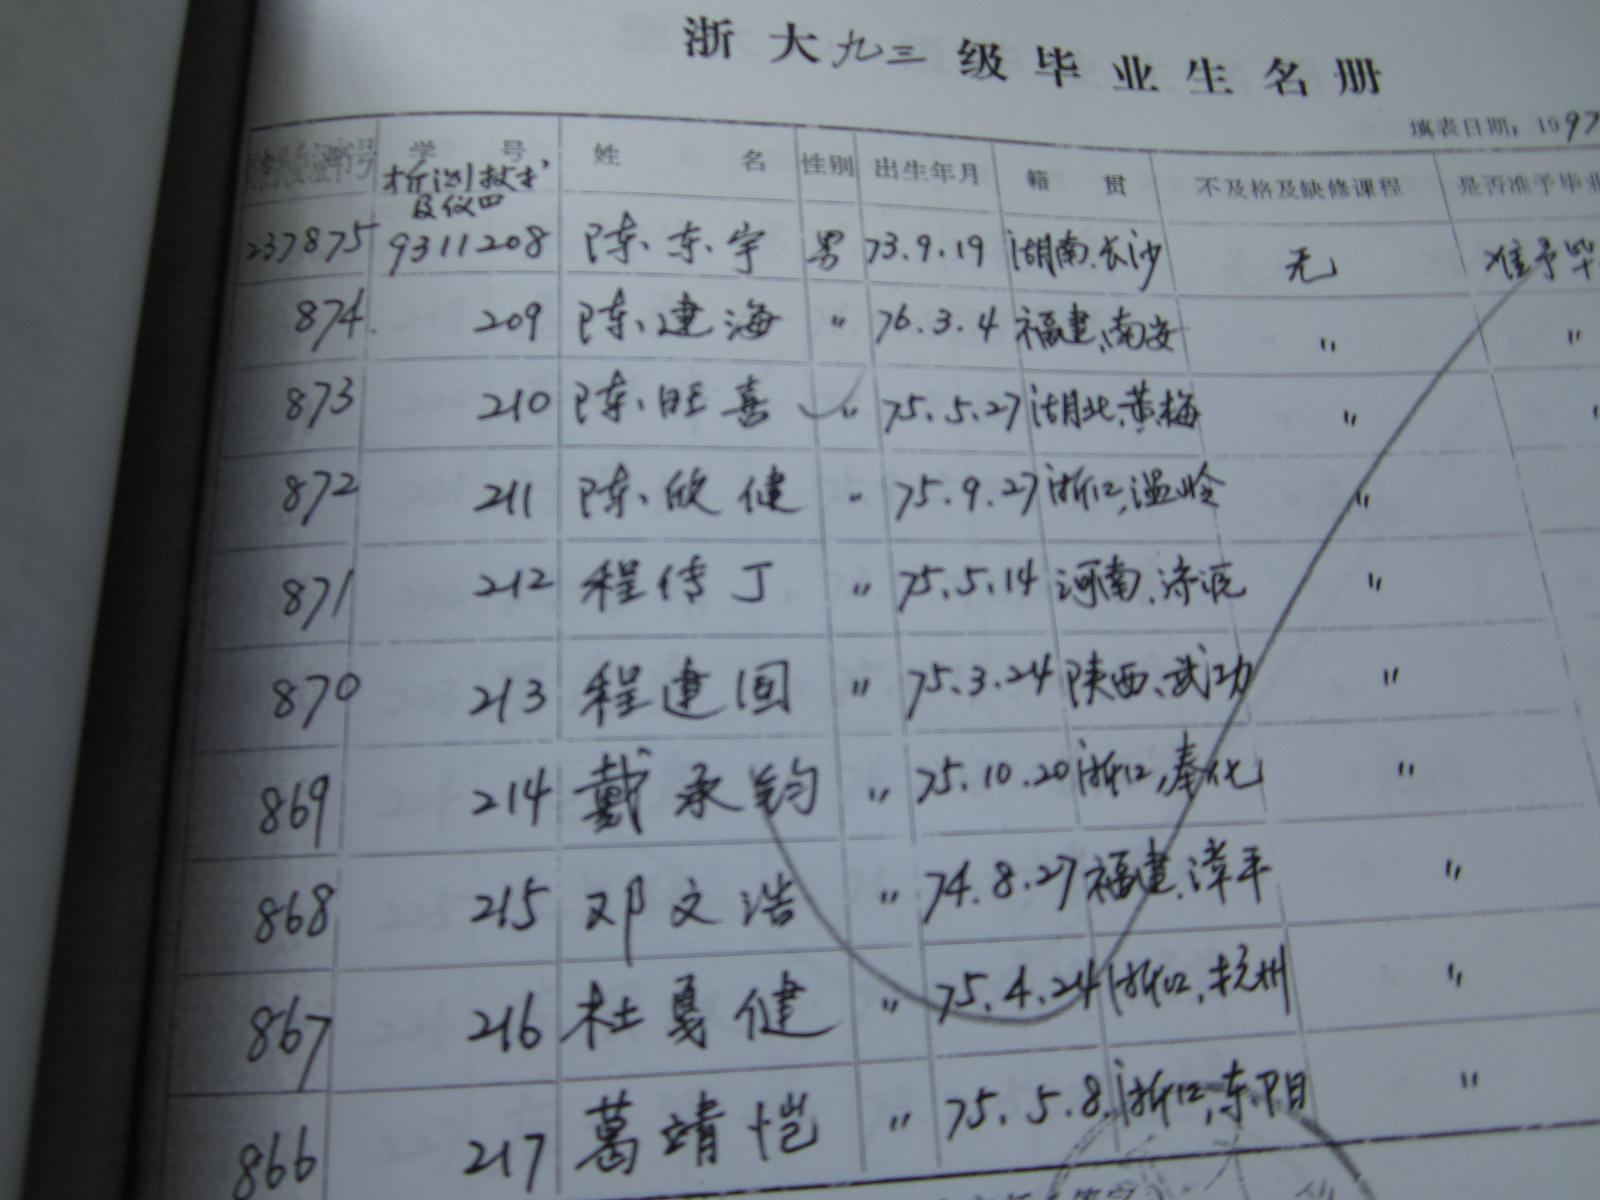 浙大九三级毕业生名册
填表日期：1997
证书号 学号 姓名 性别 出生年月 籍贯 不及格及缺修课程 是否准予毕业
检测技术
及仪四
237875 9311208 陈东宇 男 73.9.19 湖南、长沙 无 准予毕
874 209 陈建海 〃 76.3.4 福建、南安 〃 〃
873 210 陈旺喜 〃 75.5.27 湖北、黄梅 〃 〃
872 211 陈欣健 〃 75.9.27 浙江、温岭 〃
871 212 程传丁 〃 75.5.14 河南、济源 〃
870 213 程建国 〃 75.3.24 陕西、武功 〃
869 214 戴承钧 〃 75.10.20 浙江、奉化 〃
868 215 邓文浩 〃 74.8.27 福建、漳平 〃
867 216 杜戛健 〃 75.4.24 浙江、杭州 〃
866 217 葛靖恺 〃 75.5.8 浙江、东阳 〃